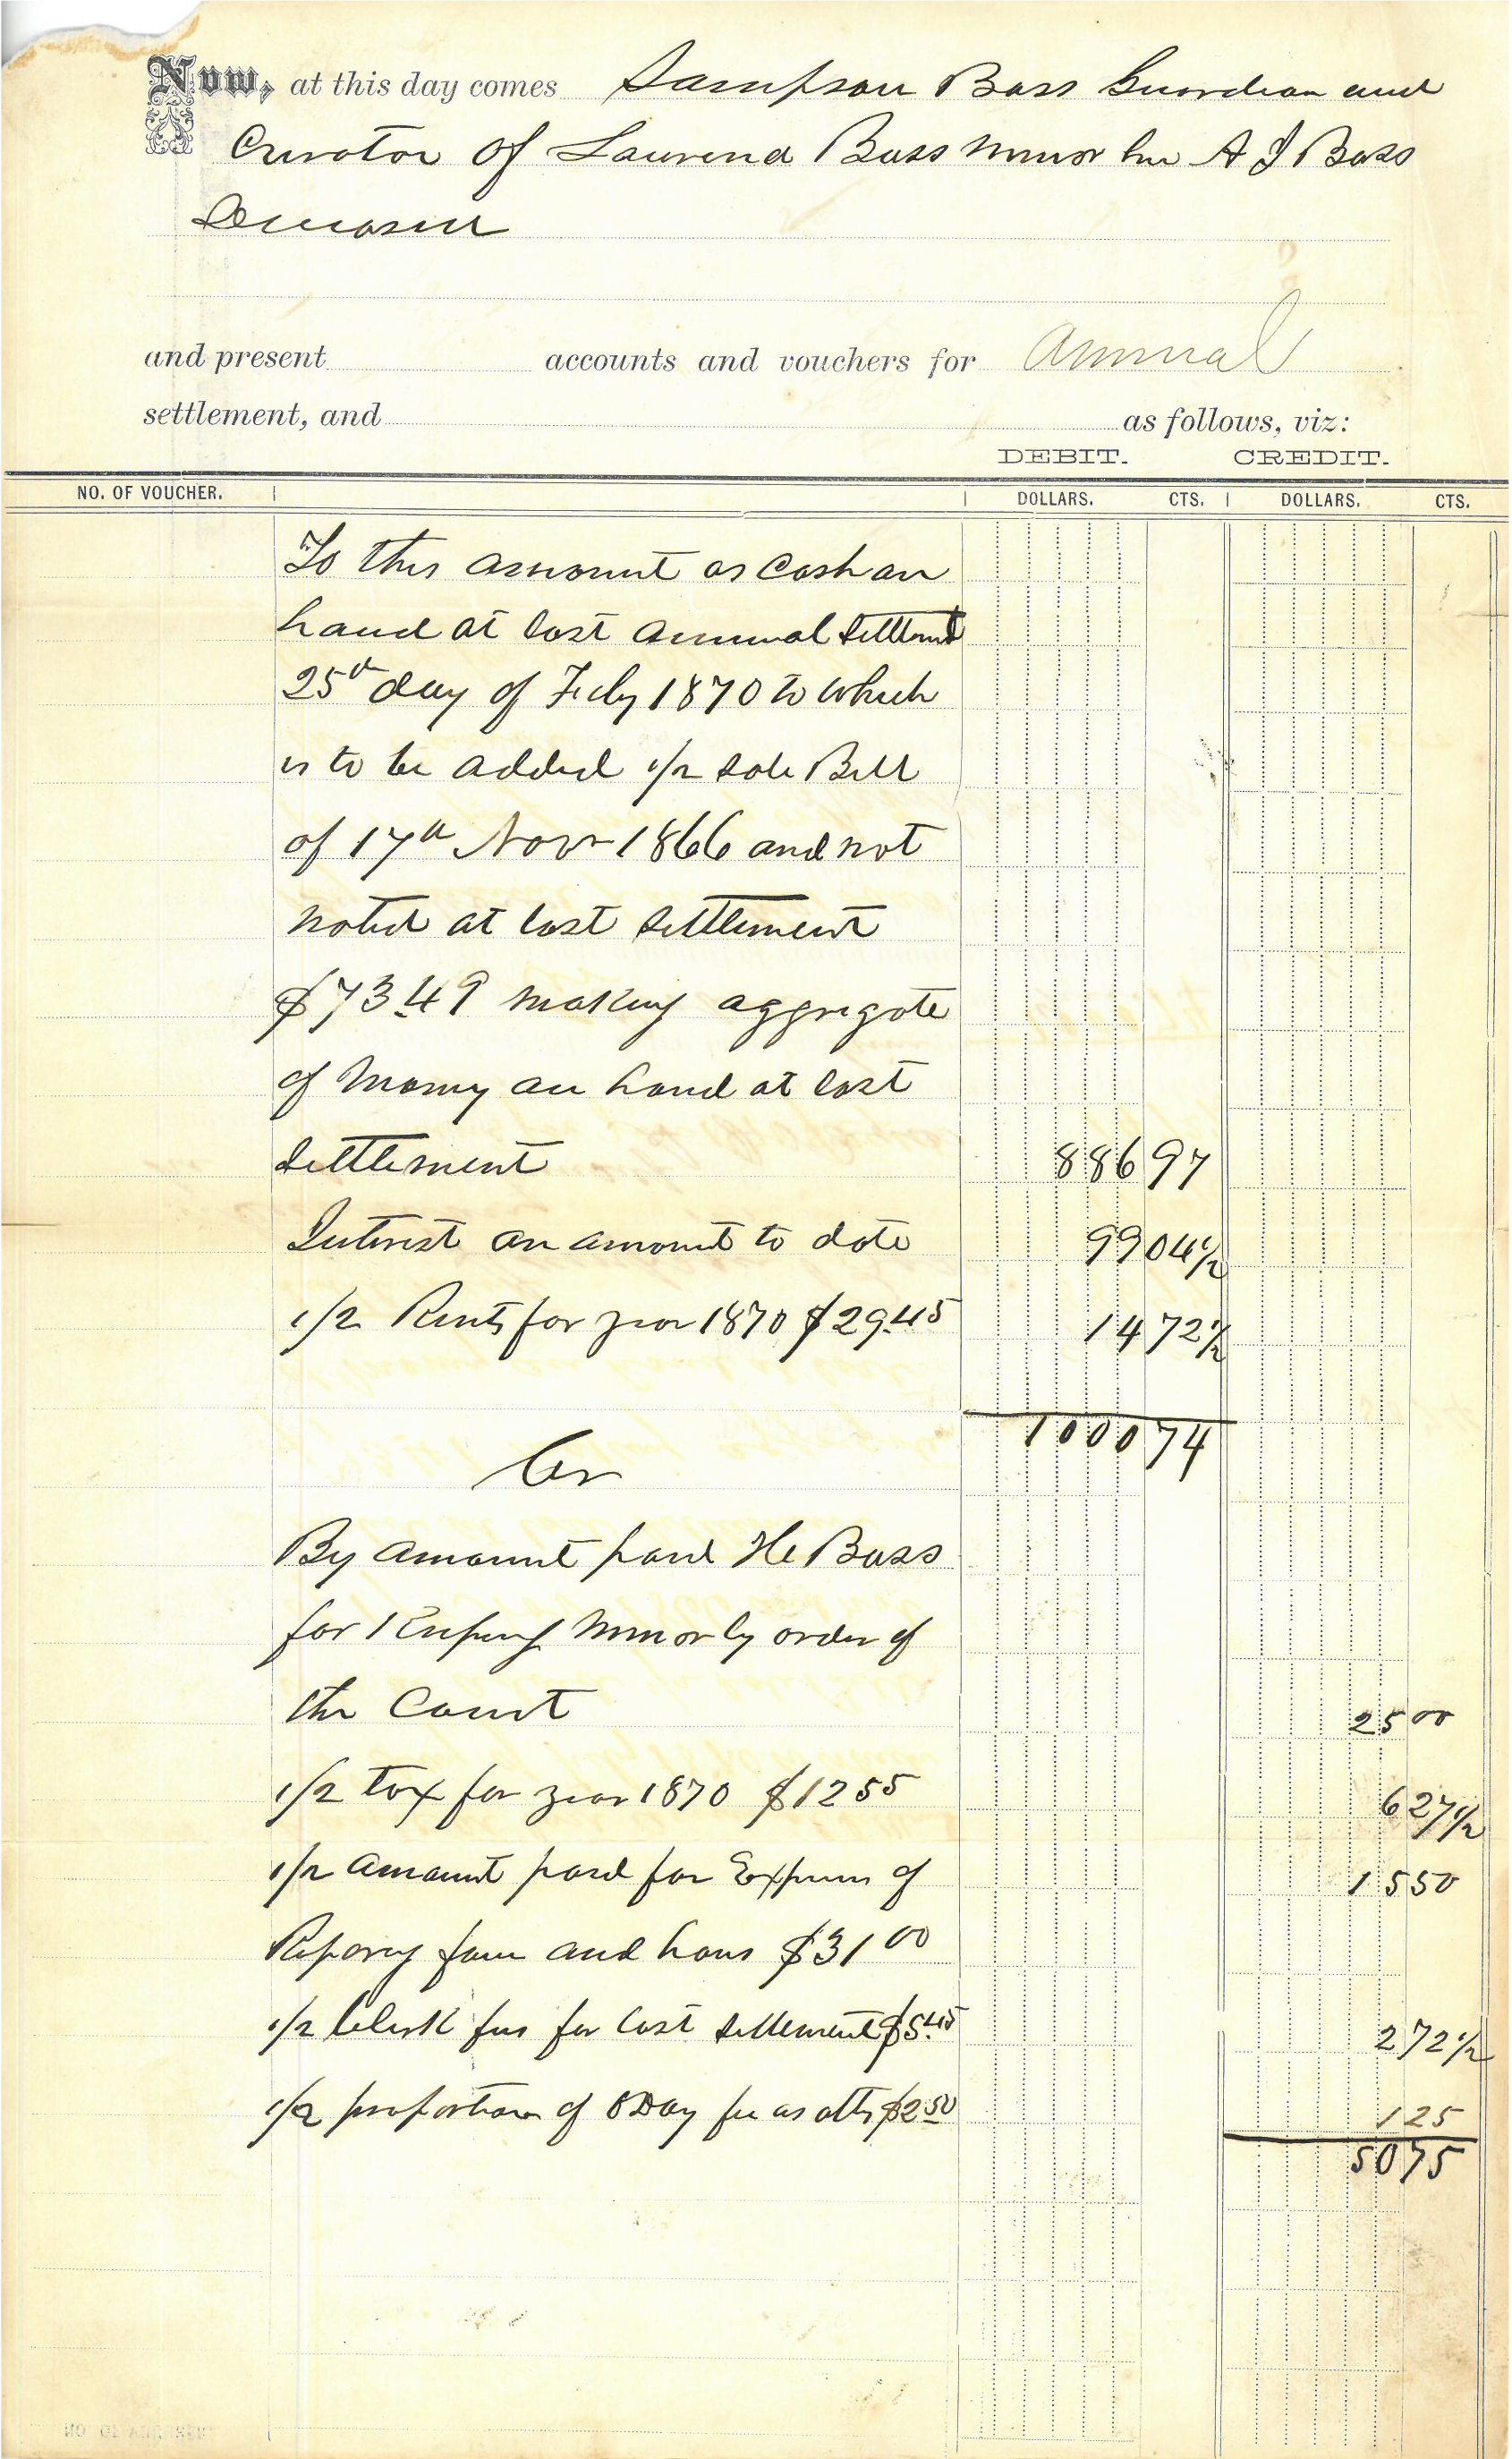 Now, at this day comes Sampson Bass Guardian and
Curator of Laurena Bass minor heir A J Bass
Deceased
and present accounts and vouchers for Annual
settlement, and as follows, viz:
DEBIT. CREDIT.
NO. OF VOUCHER. DOLLARS. CTS. DOLLARS. CTS.
To this amount as Cash on
hand at last annual Settlemt
25th day of July 1870 to which
is to be added 1/2 Sale Bill
of 17th Novr 1866 and not
noted at last Settlement
$73.49 making aggregate
of Money on hand at last
Settlement 886 97
Interest on amount to date 99 04 1/2
1/2 Rents for year 1870 $29.45 14 72 1/2
1000 74
Cr
By amount paid He Bass
for Keeping Minor by order of
the Court 25 00
1/2 tax for year 1870 $12 55 6 27 1/2
1/2 amount paid for Expens of 15 50
Reparing farm and hous $31 00
1/2 Clerk fees for last Settlement $5.45 2 72 1/2
1/2 proportion of ODay fee as atty $2.50 1 25
50 75